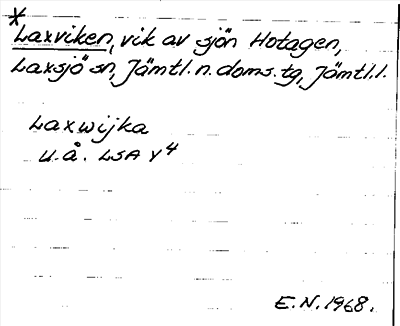 *
Laxviken, vik av sjön Hotagen,
Laxsjö sn, Jämtl. n. doms. tg, Jämtl. l.
Laxwijka
u.å. LSA Y4
E.N. 1968.